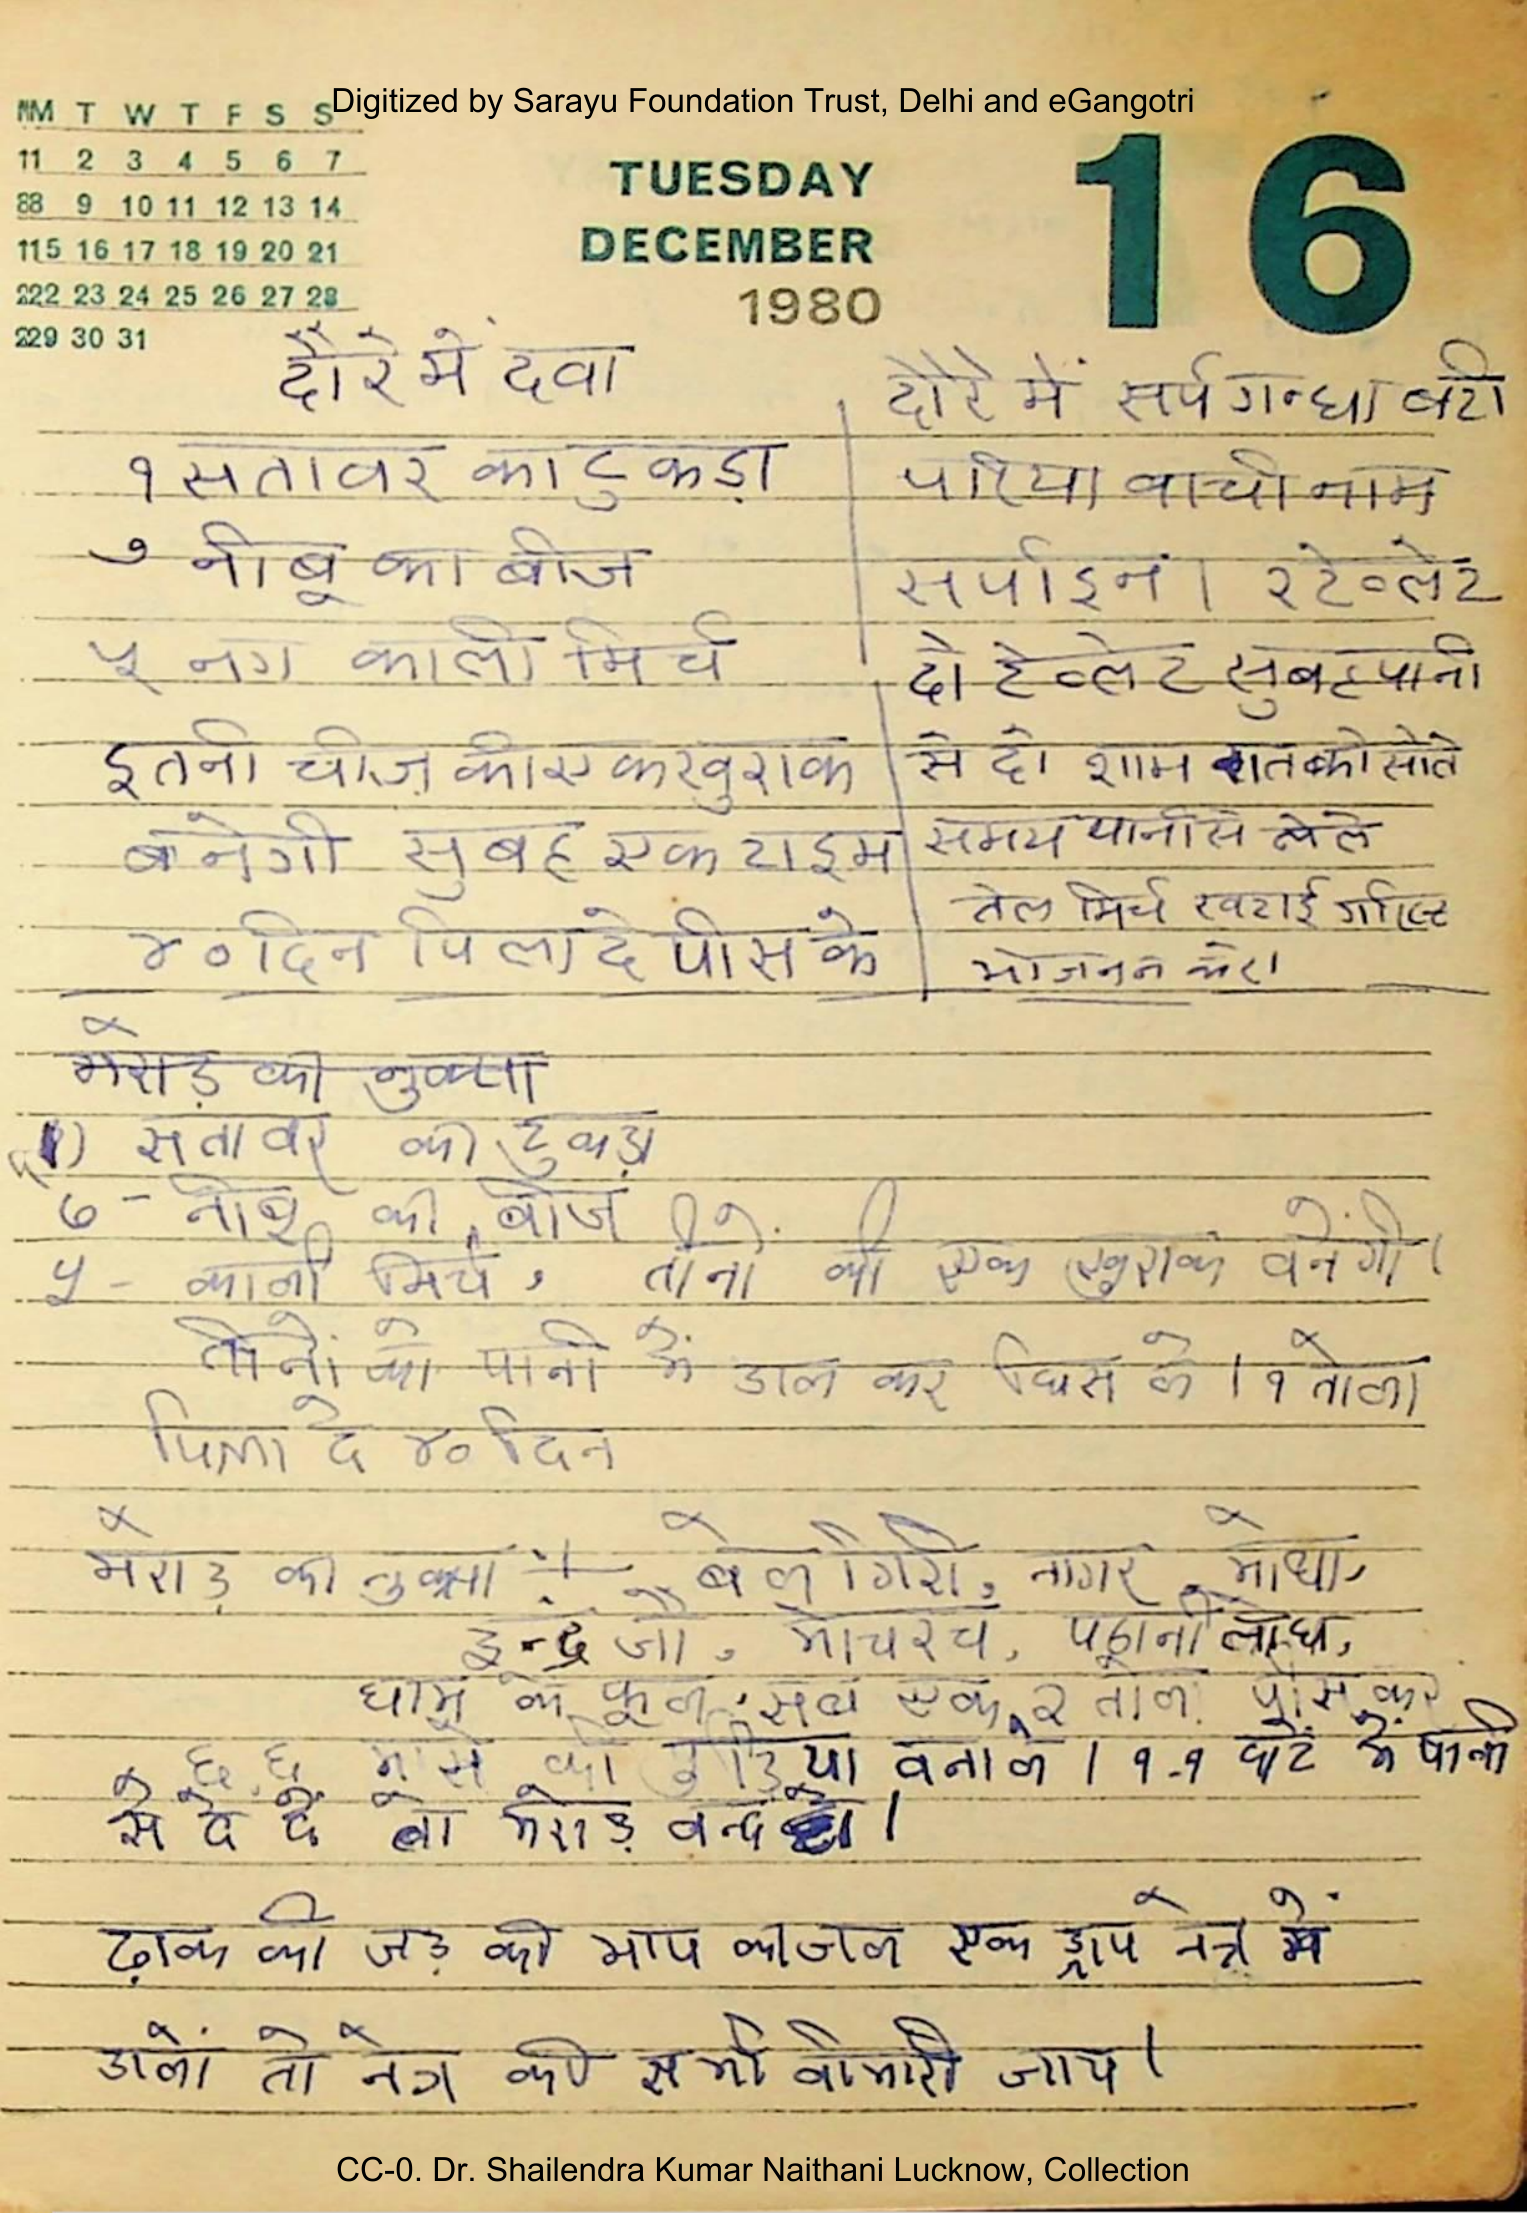 Digitized by Sarayu Foundation Trust, Delhi and eGangotri
MM T W T F S S
11 2 3 4 5 6 7
88 9 10 11 12 13 14
115 16 17 18 19 20 21
222 23 24 25 26 27 28
229 30 31
TUESDAY
DECEMBER
1980
16
दौरे में दवा
१ सतावर का टुकड़ा
७ नीबू का बीज
५ नग काली मिर्च
इतनी चीज़ की एक खुराक
बनेगी सुबह एक टाइम
४० दिन पिला दे पीस के
दौरे में सर्पगन्धा बटी
परिया वाची नाम
सर्पाइन । टेव्लेट
दो टेव्लेट सुबह पानी
से दो शाम रात को सोते
समय पानी से लेले
तेल मिर्च खटाई
भोजन न करे।
मेराड़ का नुक्सा
१) सतावर का टुकड़ा
७ - नीबू का बीज
५ - काली मिर्च, तीनों की एक खुराक बनेगी।
तीनों को पानी में डाल कर घिस ले। १ तोला
पिला दे ४० दिन
मेराड़ का नुक्सा ÷ बेलगिरी, नागर मोथा,
इन्द्र जौ, मोचरच, पठानी लोध,
के फूल, सब एक २ तोल पीस कर
६ ६ मासे की पुड़िया बनाले। १-१ घंटे में पानी
से दे दें तो मेराड़ बन्द हो।
ढ़ाक की जड़ की भाप का जल एक ड्राप नेत्र में
डालें तो नेत्र की सभी बीमारी जाय।
CC-0. Dr. Shailendra Kumar Naithani Lucknow, Collection